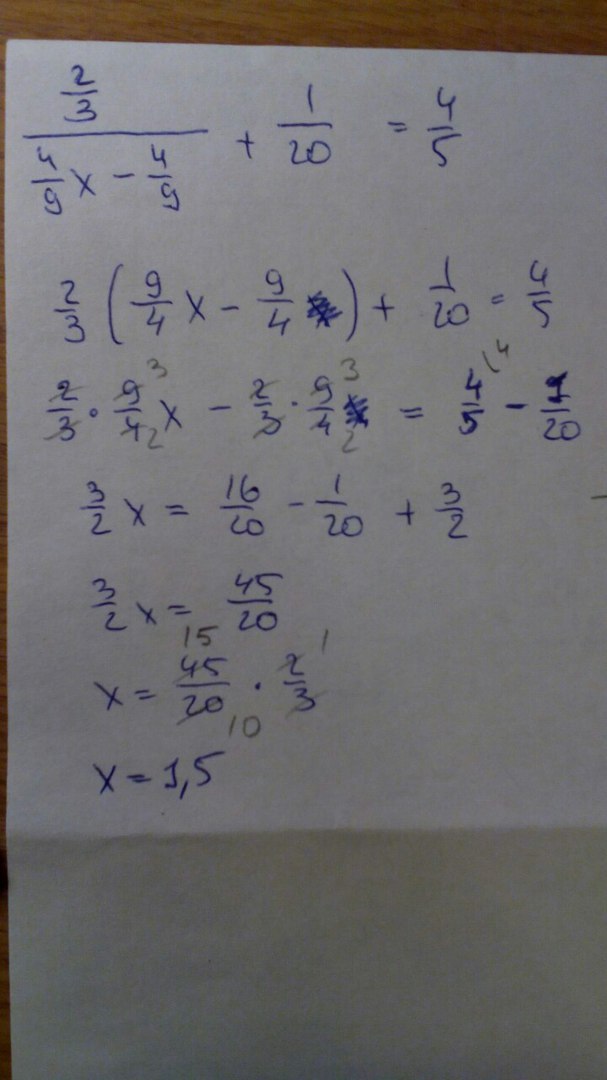 (2/3)/(4/9 x - 4/9) + 1/20 = 4/5
2/3 (9/4 x - 9/4) + 1/20 = 4/5
2/3 · 9/4 x - 2/3 · 9/4 = 4/5 - 1/20
3 2 3 2 (4
3/2 x = 16/20 - 1/20 + 3/2
3/2 x = 45/20
x = 45/20 · 2/3
15 10 1
x = 1,5